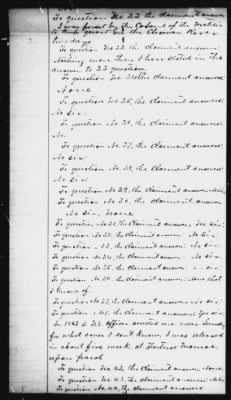 To question No. 22 the claimant answers
I was forced by the Colonel of the Malitia
to keep guard on the Chowan River
two days
To question No. 23, the claimant answers
Nothing more than I have stated in the
answer to 22 question.
To question No. 24 the claimant answers
None
To question No 25, the claimant answers;
No Sir;
To question No. 26, the claimant answers,
No.
To question No. 27, the claimant answers,
No Sir;
To question No. 28, the claimant answers,
No Sir;
To question No. 29, the claimant answers,
To question No. 30, the claimant answers,
No Sir, None
To question No 31, the claimant answers, No Sir;
To question No. 32, the claimant answers, No Sir.
To question " 33, the claimant answers; No Sir
To question No. 34, the claimant answers, No Sir
To question No. 35, the claimant answers,
To question No. 36, the claimant answers, None that
I know of
To question No. 37, the claimant answers No Sir;
To question the claimant answers; Yes Sir
In 1863 a U.S. Officer arrested me near
for what cause I don't know. I was released
in about five week at Fortress Monroe
upon parol
To question No. 42, the claimant answers None.
To question No. 43, the claimant answers,
To question No. 44, the claimant answers